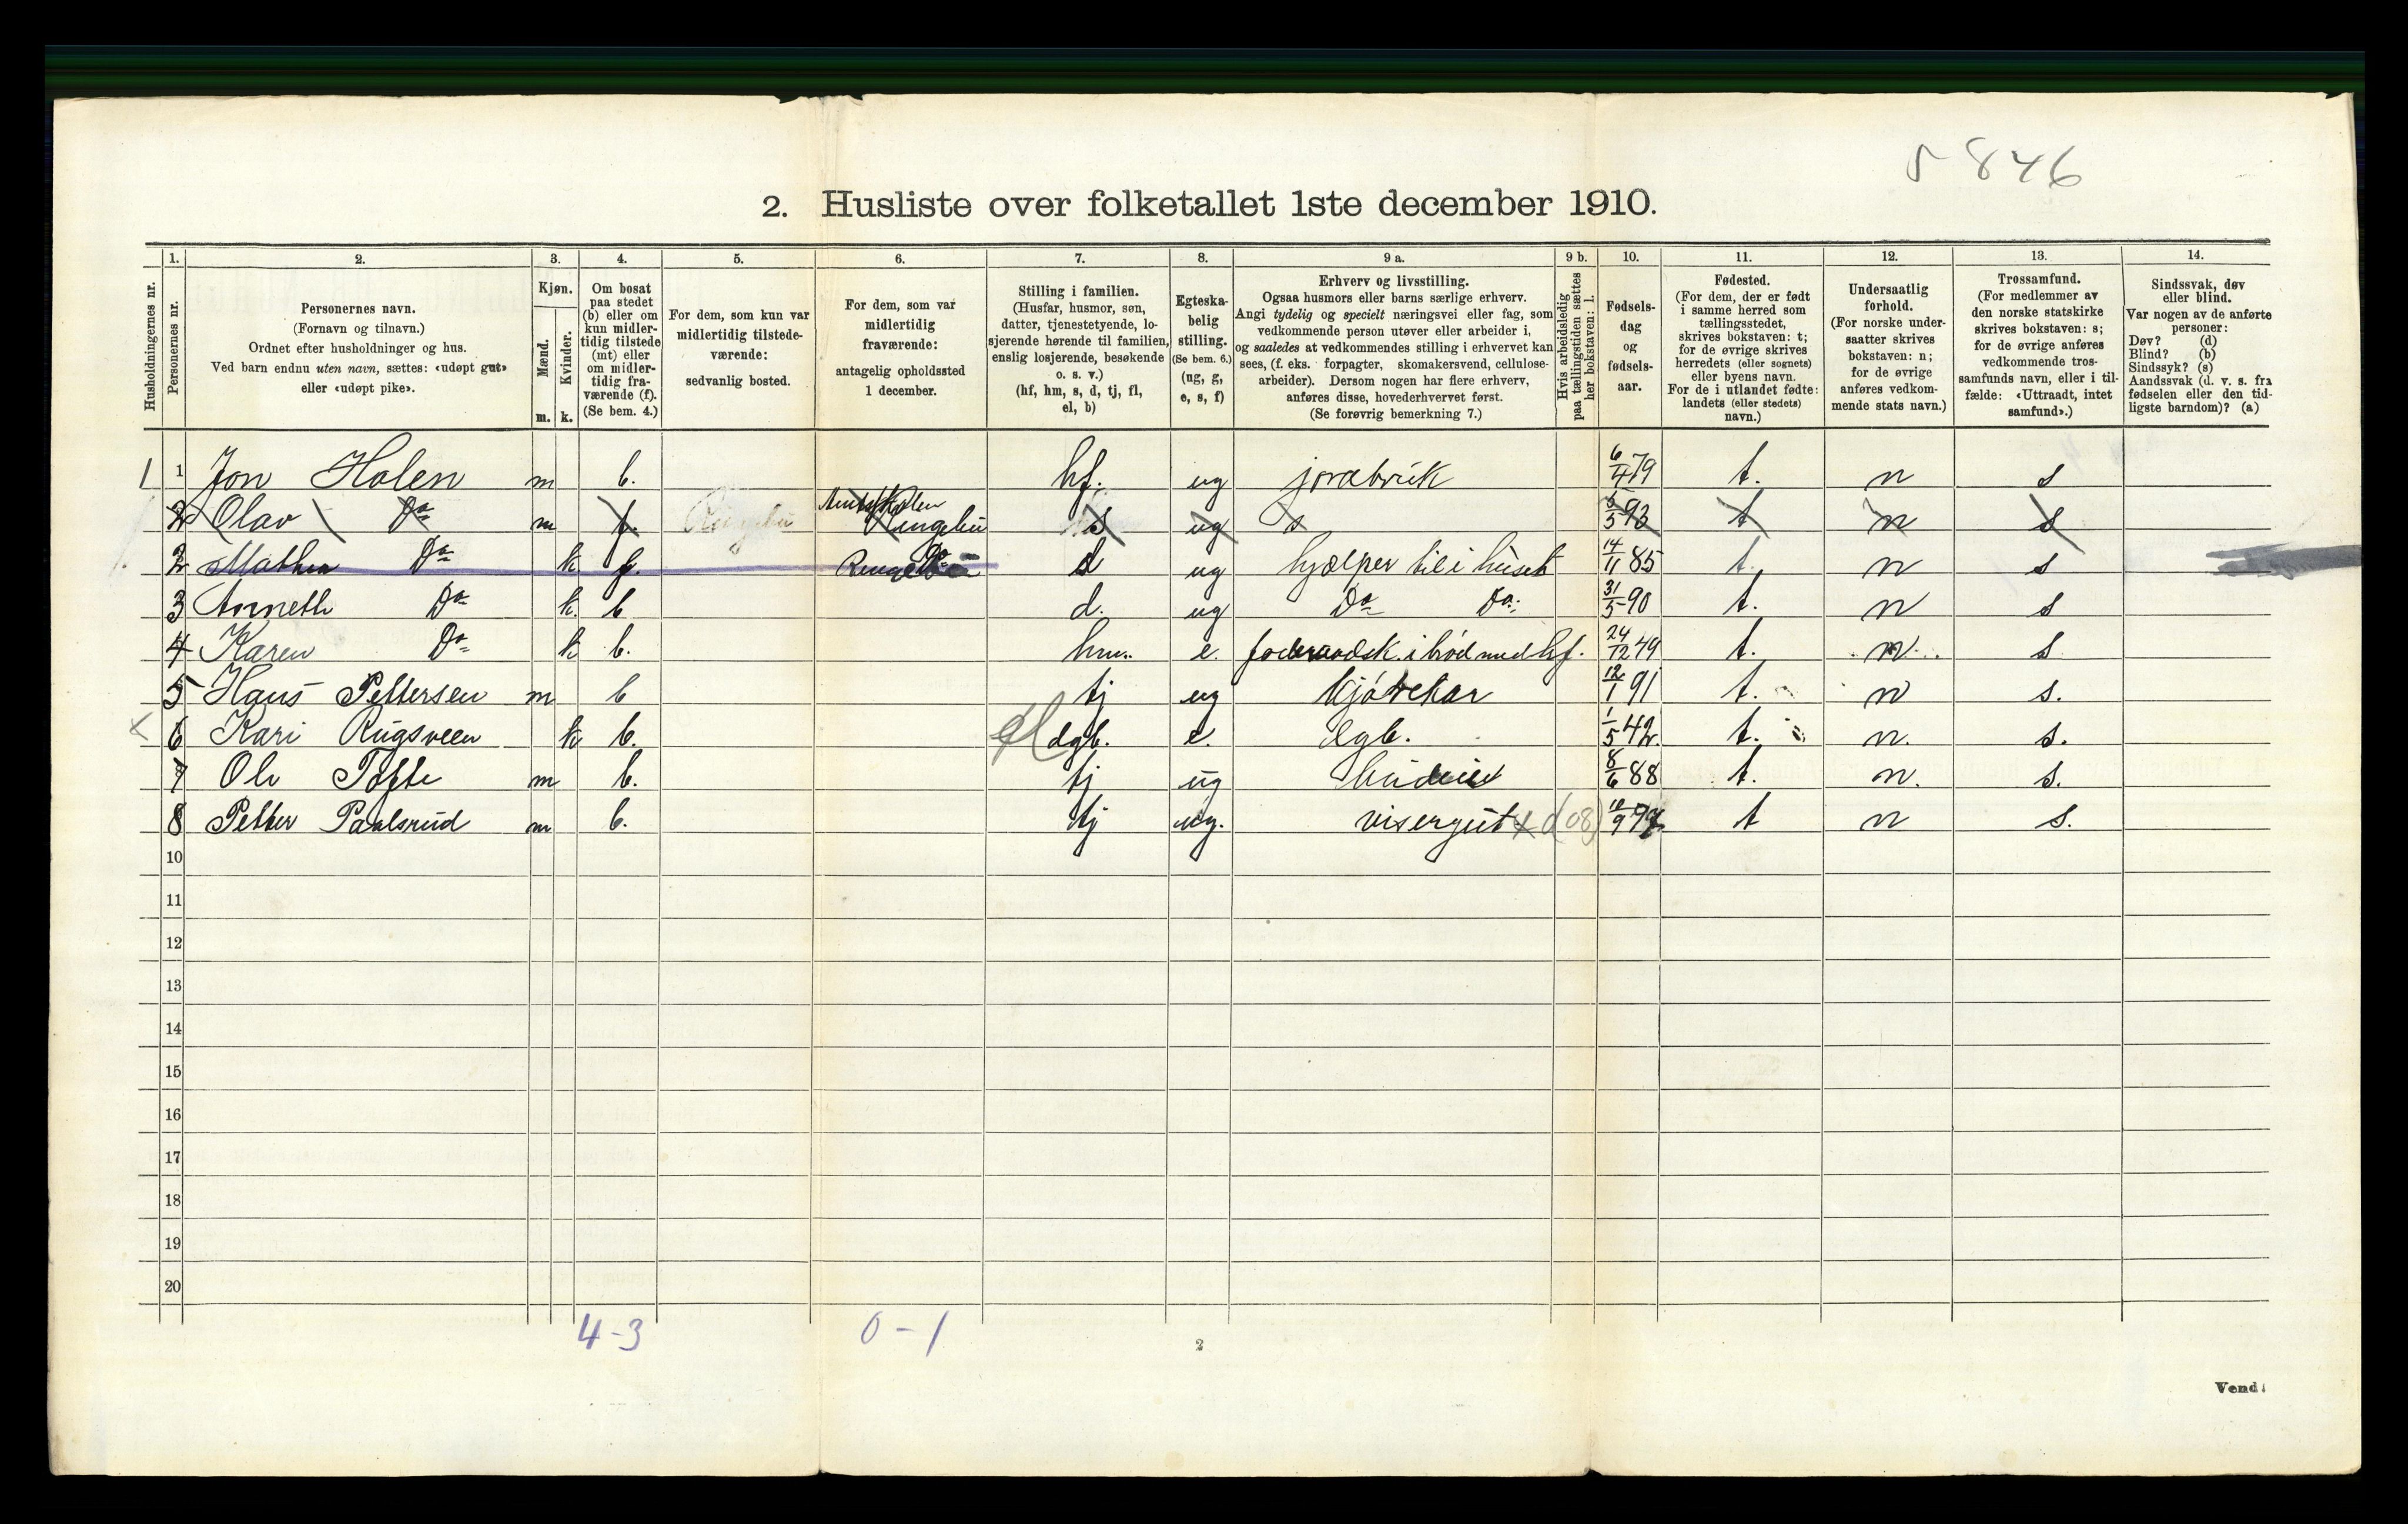 5846
2. Husliste over folketallet 1ste december 1910.
1. 2. 3. 4. 5. 6. 7. 8. 9 a. 9 b. 10. 11. 12. 13. 14.
Husholdningernes nr.
Personernes nr.
Personernes navn.
(Fornavn og tilnavn.)
Ordnet efter husholdninger og hus.
Ved barn endnu uten navn, sættes: «udøpt gut»
eller «udøpt pike».
Kjøn.
Mænd.
Kvinder.
m. k.
Om bosat
paa stedet
(b) eller om
kun midler-
tidig tilstede
(mt) eller
om midler-
tidig fra-
værende (f).
(Se bem. 4.)
For dem, som kun var
midlertidig tilstede-
værende:
sedvanlig bosted.
For dem, som var
midlertidig
fraværende:
antagelig opholdssted
1 december.
Stilling i familien.
(Husfar, husmor, søn,
datter, tjenestetyende, lo-
sjerende hørende til familien,
enslig losjerende, besøkende
o. s. v.)
(hf, hm, s, d, tj, fl,
el, b)
Egteska-
belig
stilling.
(Se bem. 6.)
(ug, g,
e, s, f)
Erhverv og livsstilling.
Ogsaa husmors eller barns særlige erhverv.
Angi tydelig og specielt næringsvei eller fag, som
vedkommende person utøver eller arbeider i,
og saaledes at vedkommendes stilling i erhvervet kan
sees, (f. eks. forpagter, skomakersvend, cellulose-
arbeider). Dersom nogen har flere erhverv,
anføres disse, hovederhvervet først.
(Se forøvrig bemerkning 7.)
Hvis arbeidsledig
paa tællingstiden sættes
her bokstaven: l.
Fødsels-
dag
og
fødsels-
aar.
Fødested.
(For dem, der er født
i samme herred som
tællingsstedet,
skrives bokstaven: t;
for de øvrige skrives
herredets (eller sognets)
eller byens navn.
For de i utlandet fødte:
landets (eller stedets)
navn.)
Undersaatlig
forhold.
(For norske under-
saatter skrives
bokstaven: n;
for de øvrige
anføres vedkom-
mende stats navn.)
Trossamfund.
(For medlemmer av
den norske statskirke
skrives bokstaven: s;
for de øvrige anføres
vedkommende tros-
samfunds navn, eller i til-
fælde: «Uttraadt, intet
samfund».)
Sindssvak, døv
eller blind.
Var nogen av de anførte
personer:
Døv? (d)
Blind? (b)
Sindssyk? (s)
Aandssvak (d. v. s. fra
fødselen eller den tid-
ligste barndom)? (a)
1 1 Jon Holen m b. hf. ug jordbruk 6/4 79 t. n s
2 Olav Do m f. Ringebu s ug s 5/5 93 t n s
2 Mathea Do k f. d ug hjælper til i huset 14/11 85 t. n s
3 Anneth Do k. b d. ug Do Do 31/5 90 t. n s
4 Karen Do k b. hm. e. 24/12 49 t. n s
5 Hans Pettersen m b tj ug kjørekar 12/1 91 t. n s.
6 Kari Rugsveen k b. el dgb. e. Lgb. 1/5 42. t. n. s.
7 Ole Tofte m b. tj ug 8/6 88 t. n. s.
8 Petter Paalsrud m b. tj ug. visergut (08) t n s.
10
11
12
13
14
15
16
17
18
19
20
4-3 0-1
2
Vend!